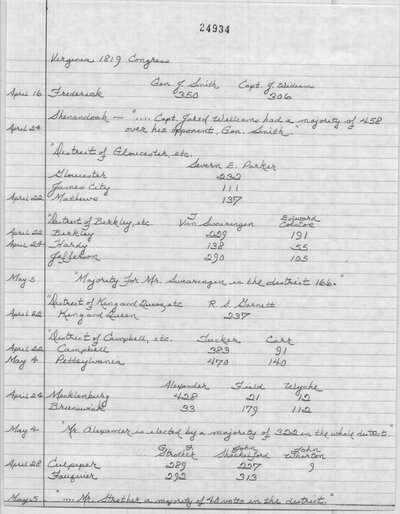 24934
Virginia 1819 Congress
Gen. J. Smith Capt. J. William
April 16 Frederick 350 306
Shenandoah — ".... Capt. Jared Williams had a majority of 458
April 24 over his opponent, Gen. Smith."
"District of Gloucester, etc.
Severn E. Parker
Gloucester 232
James City 111
April 22 Mathews 137
"District of Berkley, etc. Van Swearingen Edward Colston
April 22 Berkley 229 191
April 24 Hardy 138 55
Jefferson 290 105
May 5 "Majority for Mr. Swearingen in the district 166."
"District of King and Queen, etc R. S. Garnett
April 22 King and Queen 237
"District of Campbell, etc. Tucker Carr
April 22 Campbell 383 91
May 4 Pittsylvania 470 140
Alexander Field Wyche
April 24 Mecklenburg 428 21 12
Brunswick 33 179 112
May 4 "Mr. Alexander is elected by a majority of 322 in the whole district."
Strother John Shackelford John
April 28 Culpeper 289 227 9
Fauquier 292 313
May 5. ".... Mr. Strother a majority of 40 votes in the district."